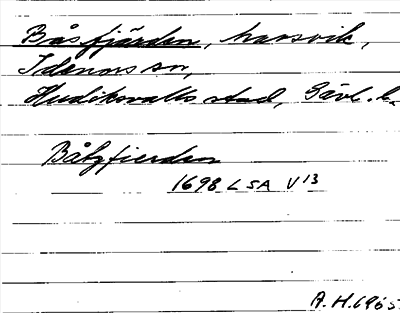 Båsfjärden, havsvik,
Idenors sn,
Hudiksvalls stad, Gävl. l.
Båtzfierden
1698 LSA V 13
A.H. 1965